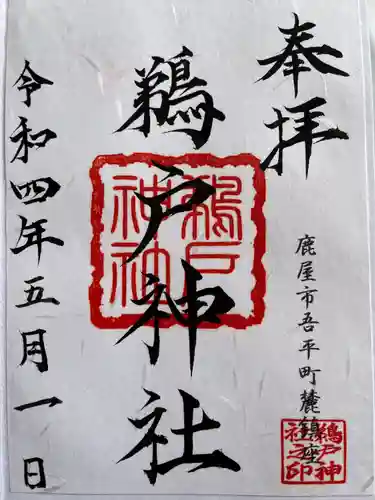 奉拝
鹿屋市吾平町麓鎮座
鵜戸神社
令和四年五月一日
鵜戸神社
鵜戸神社之印